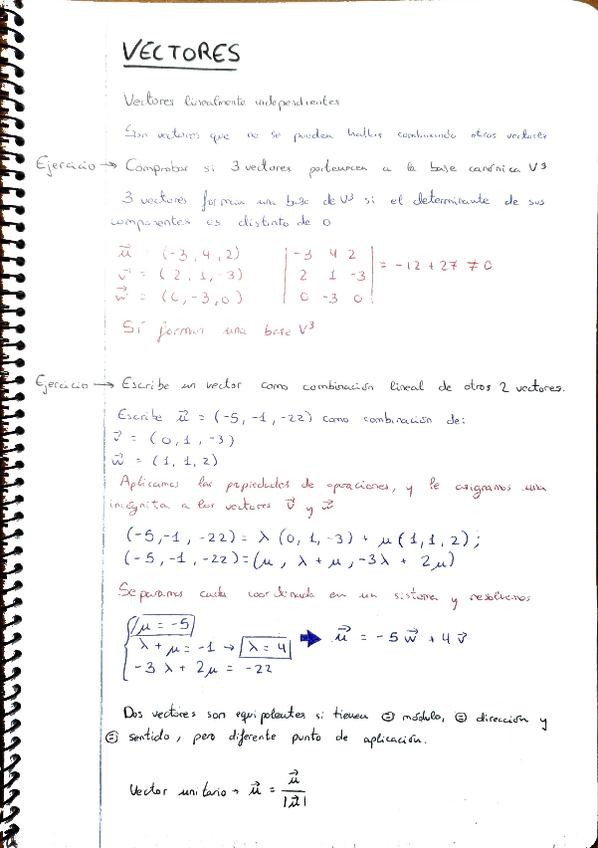 VECTORES
Vectores linealmente independientes
Son vectores que no se pueden hallar combinando otros vectores
Ejercicio → Comprobar si 3 vectores pertenecen a la base canónica V³
3 vectores forman una base de V³ si el determinante de sus
componentes es distinto de 0
u⃗ = (-3, 4, 2) | -3 4 2 |
v⃗ = (2, 1, -3) | 2 1 -3 | = -12 + 27 ≠ 0
w⃗ = (0, -3, 0) | 0 -3 0 |
Sí forman una base V³
Ejercicio → Escribe un vector como combinación lineal de otros 2 vectores.
Escribe u⃗ = (-5, -1, -22) como combinación de:
v⃗ = (0, 1, -3)
w⃗ = (1, 1, 2)
Aplicamos las propiedades de operaciones, y le asignamos una
incógnita a los vectores v⃗ y w⃗
(-5, -1, -22) = λ (0, 1, -3) + μ (1, 1, 2);
(-5, -1, -22) = (μ, λ + μ, -3λ + 2μ)
Separamos cada coordenada en un sistema y resolvemos
μ = -5
λ + μ = -1 → λ = 4 ➡ u⃗ = -5w⃗ + 4v⃗
-3λ + 2μ = -22
Dos vectores son equipolentes si tienen = módulo, = dirección y
= sentido, pero diferente punto de aplicación.
Vector unitario → u⃗ = u⃗ / |u⃗|